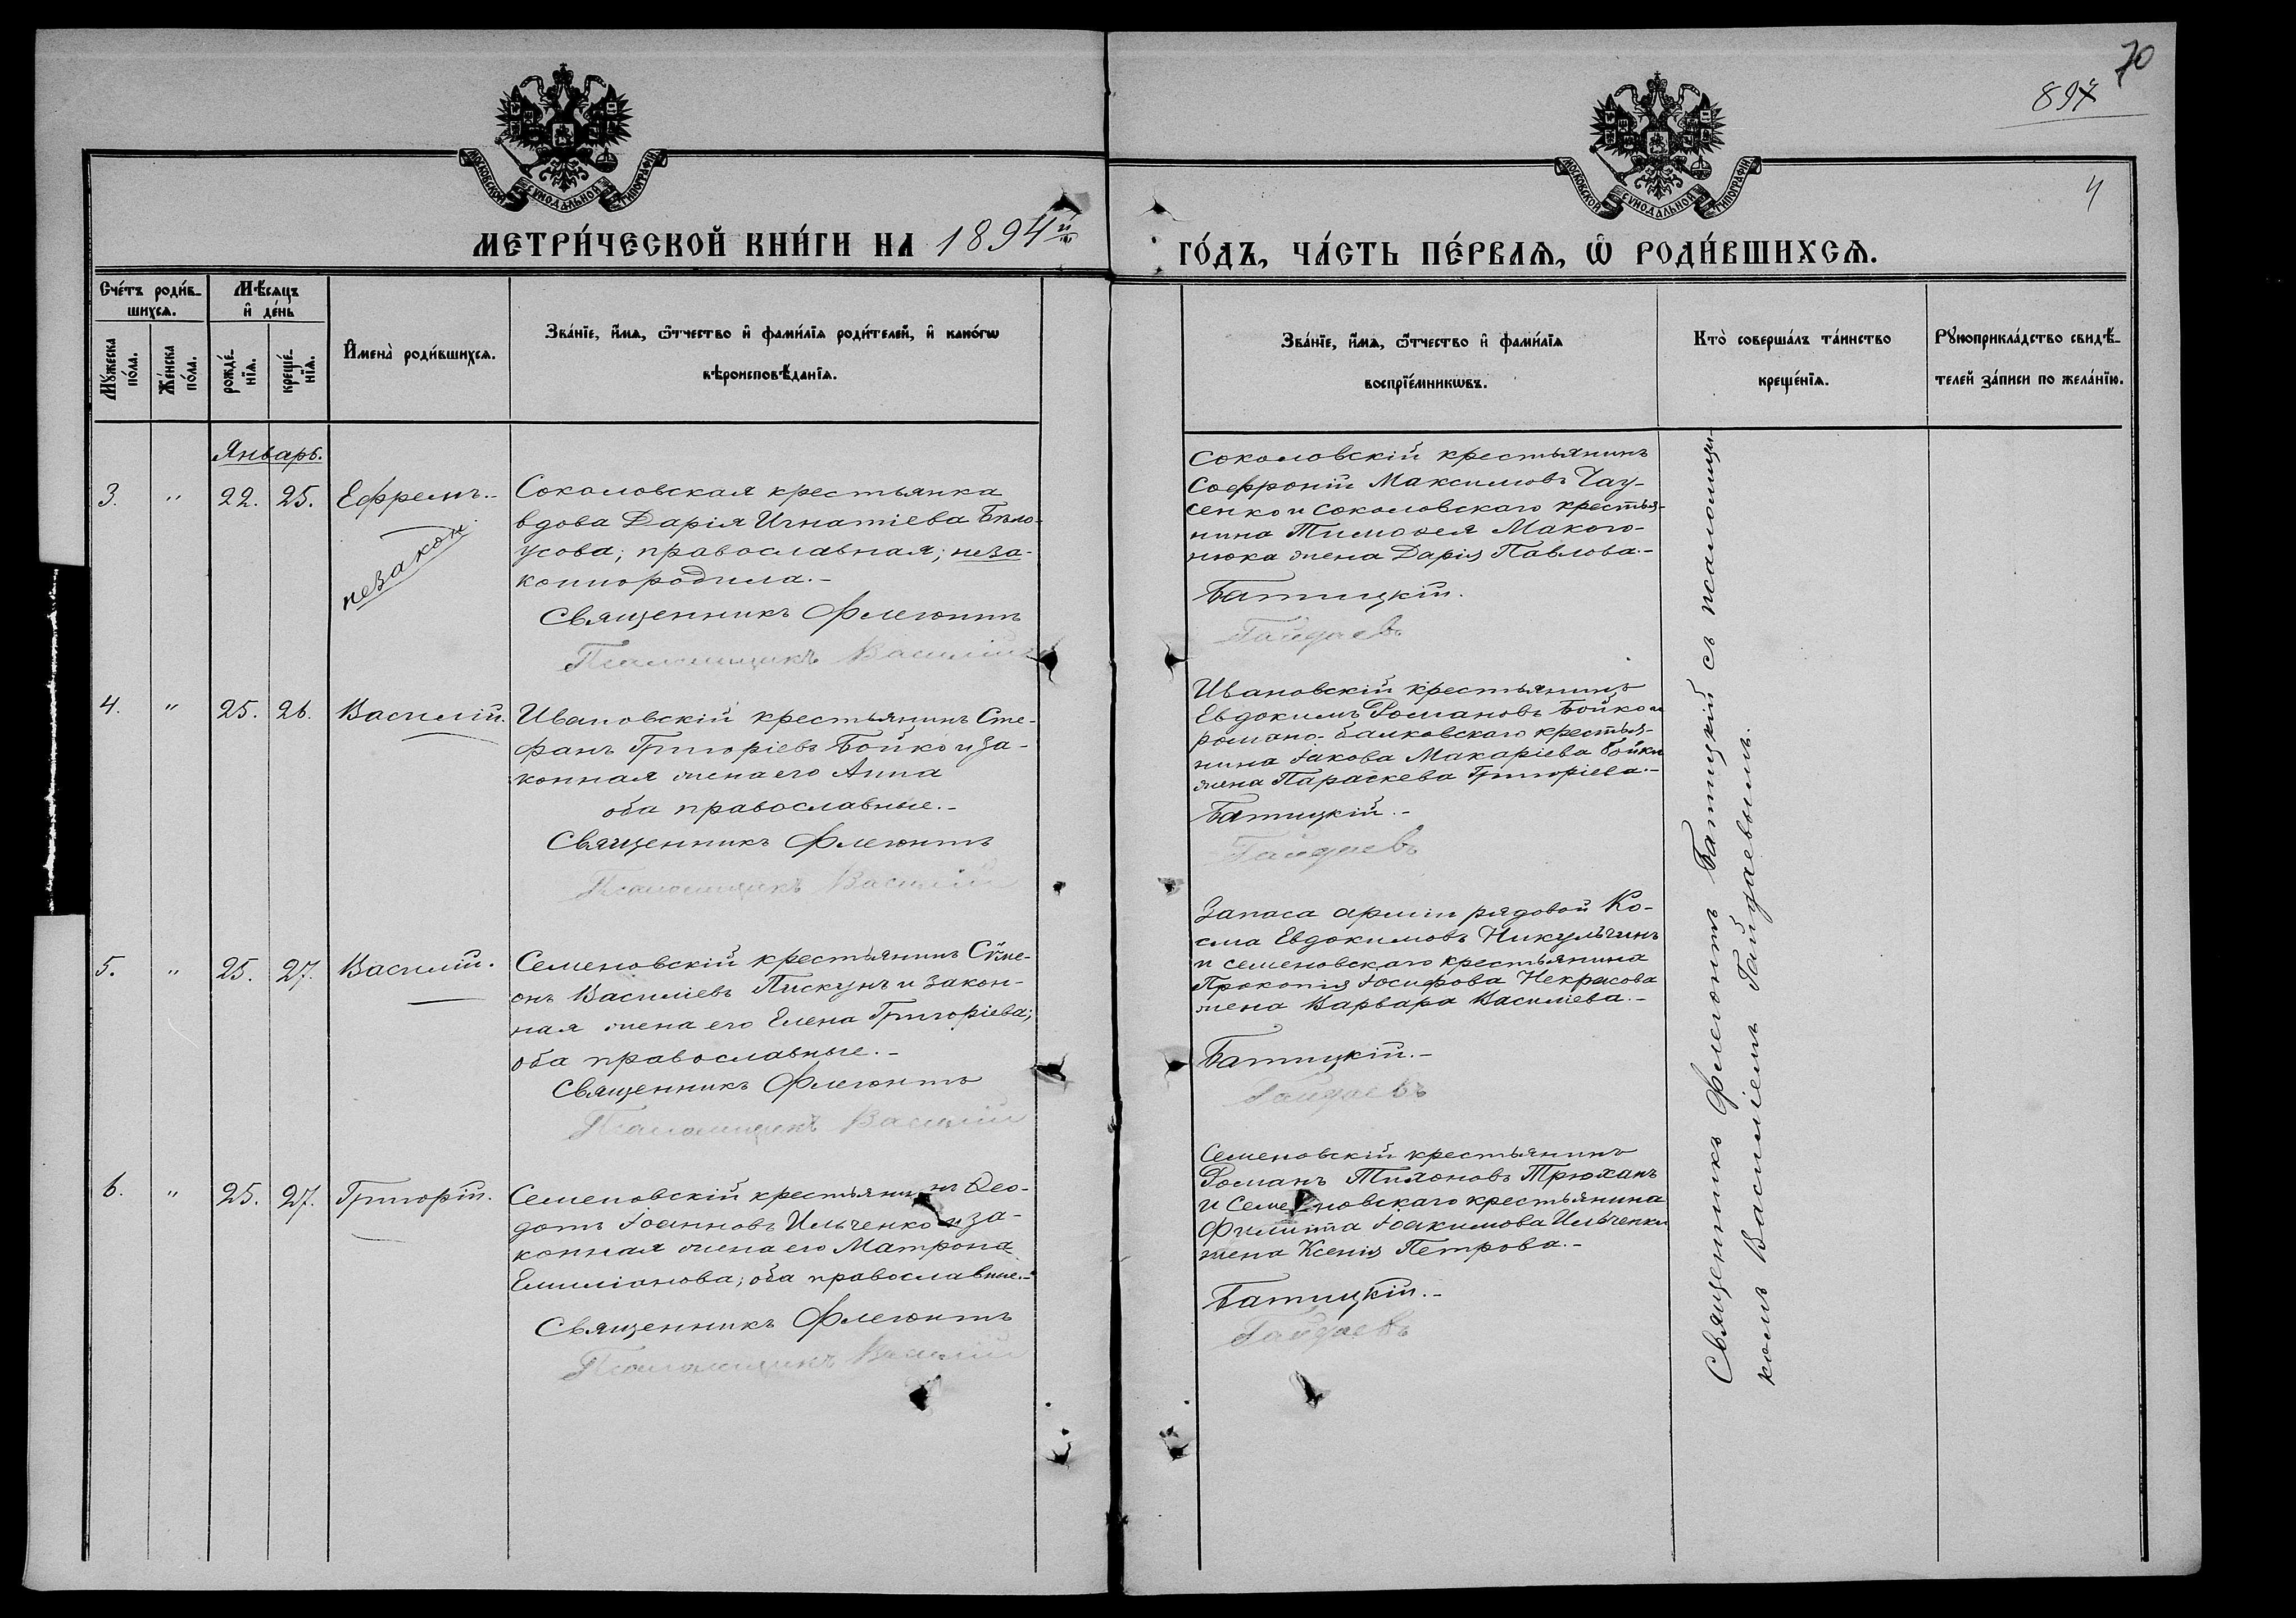 70
897
4
МОСКОВСКОЙ СѴНОДАЛЬНОЙ ТИПОГРАФІИ
МОСКОВСКОЙ СѴНОДАЛЬНОЙ ТИПОГРАФІИ
МЕТРИ́ЧЕСКОЙ КНИ́ГИ НА 1894й
ГО́ДЪ, ЧА́СТЬ ПЕ́РВАѦ, Ѡ҆ РОДИ́ВШИХСѦ.
Сче́тъ роди́в-
шихсѧ.
Мѣ́сѧцъ
и҆ де́нь
Мꙋ́жеска
по́ла.
Же́нска
по́ла.
рожде́-
нїѧ.
креще́-
нїѧ.
И҆мена̀ роди́вшихсѧ.
Зва́нїе, и҆́мѧ, ѻ҆́тчество и҆ фами́лїѧ роди́телей, и҆ како́гѡ
вѣроисповѣ́данїѧ.
Зва́нїе, и҆́мѧ, ѻ҆́тчество и҆ фами́лїѧ
воспрїе́мникѡвъ.
Кто̀ соверша́лъ та́инство
креще́нїѧ.
Рꙋкоприкла́дство свидѣ́-
телей за́писи по жела́нїю.
Январь.
3. " 22. 25. Ефремъ.-
незакон.
Соколовская крестьянка
вдова Дарія Игнатіева Бѣло-
усова; православная; неза-
коннородила.-
Священникъ Флегонтъ
Псаломщикъ Василій
Соколовскій крестьянинъ
Софроній Максимовъ Чау-
сенко и соколовскаго крестья-
нина Тимоѳея Макого-
нюка жена Дарія Павлова.-
Батицкій.
Гайдаевъ
4. " 25. 26. Василій.
Ивановскій крестьянинъ Сте-
фанъ Григоріевъ Бойко и за-
конная жена его Анна
оба православные.-
Священникъ Флегонтъ
Псаломщикъ Василій
Ивановскій крестьянинъ
Евдокимъ Романовъ Бойко и
романо-балковскаго крестья-
нина Іакова Макаріева Бойки
жена Параскева Григоріева.-
Батицкій.-
Гайдаевъ
5. " 25. 27. Василій.
Семеновскій крестьянинъ Сѵме-
онъ Василіевъ Пискунъ и закон-
ная жена его Елена Григоріева;
оба православные.-
Священникъ Флегонтъ
Псаломщикъ Василій
Запаса арміи рядовой Ко-
сма Евдокимовъ Никульчинъ
и семеновскаго крестьянина
Прокопія Іосифова Некрасова
жена Варвара Василіева.-
Батицкій.-
Гайдаевъ
6. " 25. 27. Григорій.
Семеновскій крестьянинъ Ѳео-
дотъ Іоанновъ Ильченко и за-
конная жена его Матрона
Емиліанова; оба православные.-
Священникъ Флегонтъ
Псаломщикъ Василій
Семеновскій крестьянинъ
Романъ Тихоновъ Трюханъ
и Семеновскаго крестьянина
Филиппа Іоакимова Ильченки
жена Ксенія Петрова.-
Батицкій.-
Гайдаевъ
Священникъ Флегонтъ Батицкій съ псаломщи-
комъ Василіемъ Гайдаевымъ.